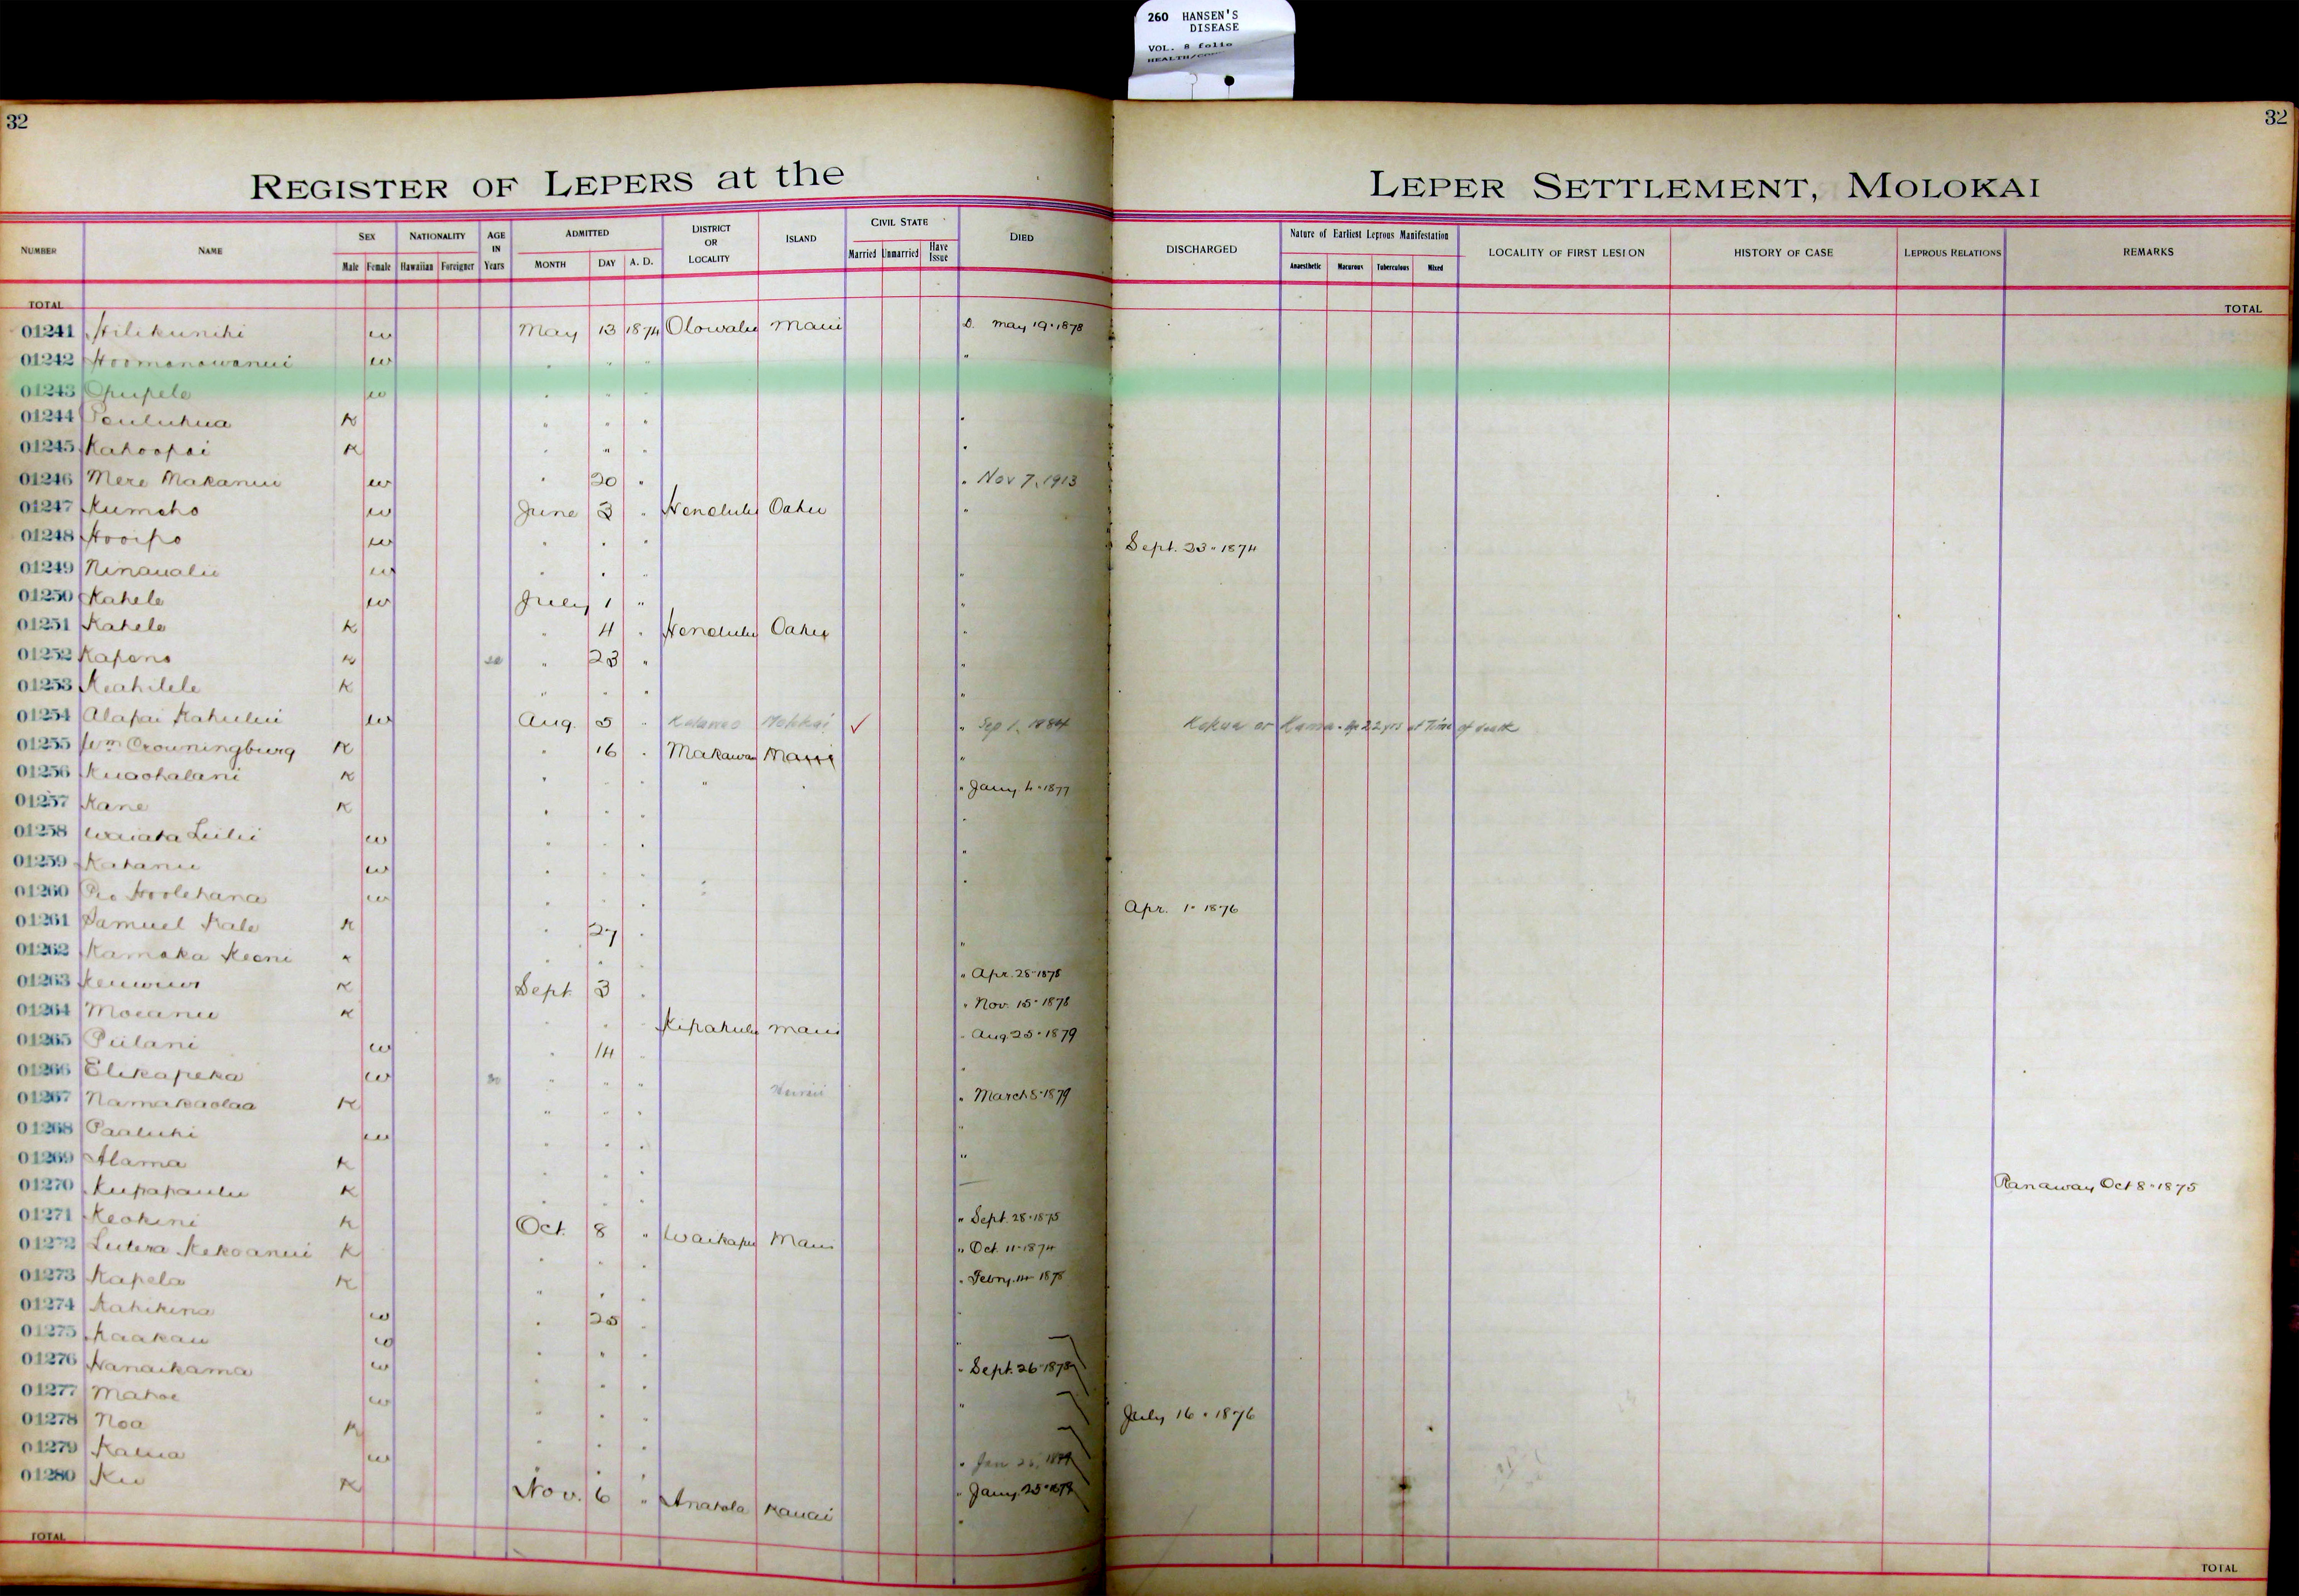 260 HANSEN'S
DISEASE
VOL. 8 folio
32
32
REGISTER OF LEPERS at the LEPER SETTLEMENT, MOLOKAI
NUMBER NAME SEX NATIONALITY AGE IN Years ADMITTED DISTRICT OR LOCALITY ISLAND CIVIL STATE DIED DISCHARGED Nature of Earliest Leprous Manifestation LOCALITY OF FIRST LESION HISTORY OF CASE LEPROUS RELATIONS REMARKS
Male Female Hawaiian Foreigner MONTH DAY A. D. Married Unmarried Have Issue Anaesthetic Macurous Tuberculous Mixed
TOTAL TOTAL
01241 Hilikunihi w May 13 1874 Olowalu Maui D. May 19 · 1878
01242 Hoomanawanui w " " " "
01243 Opupele w " " "
01244 Pauluhua K " " " "
01245 Kahoopai K " " " "
01246 Mere Makanui w " 20 " " Nov 7, 1913
01247 Kumeho w June 3 " Honolulu Oahu "
01248 Hooipo w " " " Sept. 23 · 1874
01249 Ninaualii w " " " "
01250 Kahele w July 1 " "
01251 Kahele K " 4 " Honolulu Oahu "
01252 Kapena K " 23 " "
01253 Keahilele K " " " "
01254 Alapai Kahului w Aug. 5 " Kalawao Molokai ✓ " Sep 1, 1884 Kokua or Kamaa. Age 22 yrs at Time of death
01255 Wm Crowningburg K " 16 " Makawao Maui "
01256 Kuaohalani K " " " " " " Jany 4 · 1877
01257 Kane K " " " "
01258 Waiata Luilii w " " " "
01259 Katanu w " " " "
01260 Pio Hoolehana w " " " Apr. 1 · 1876
01261 Samuel Kale K " 27 " "
01262 Kamaka Keoni K " " " " Apr. 28 · 1878
01263 Keuwius K Sept. 3 " " Nov. 15 · 1878
01264 Moeanu K " " " Kipahulu Maui " Aug 25 · 1879
01265 Piilani w " 14 " "
01266 Elikapeka w 30 " " " Hawaii " March 8 · 1879
01267 Namakaolaa K " " " "
01268 Paaluhi w " " " "
01269 Alama K " " "
01270 Kupapaulu K " " " Ranaway Oct 8 · 1875
01271 Keokini K Oct. 8 " Waikapu Maui " Sept. 28 · 1875
01272 Lutera Kekoanui K " " " " Oct. 11 · 1874
01273 Kapela K " " " " Febry. 14 · 1878
01274 Kahikina w " 25 " "
01275 Kaakau w " " " "
01276 Nanaikama w " " " " Sept. 26 · 1878
01277 Mahoe w " " " "
01278 Noa K " " " July 16 · 1876
01279 Kalua w " " " " Jan 26,
01280 Ku K Nov. 6 " Anahola Kauai " Jany. 25 ·
TOTAL TOTAL